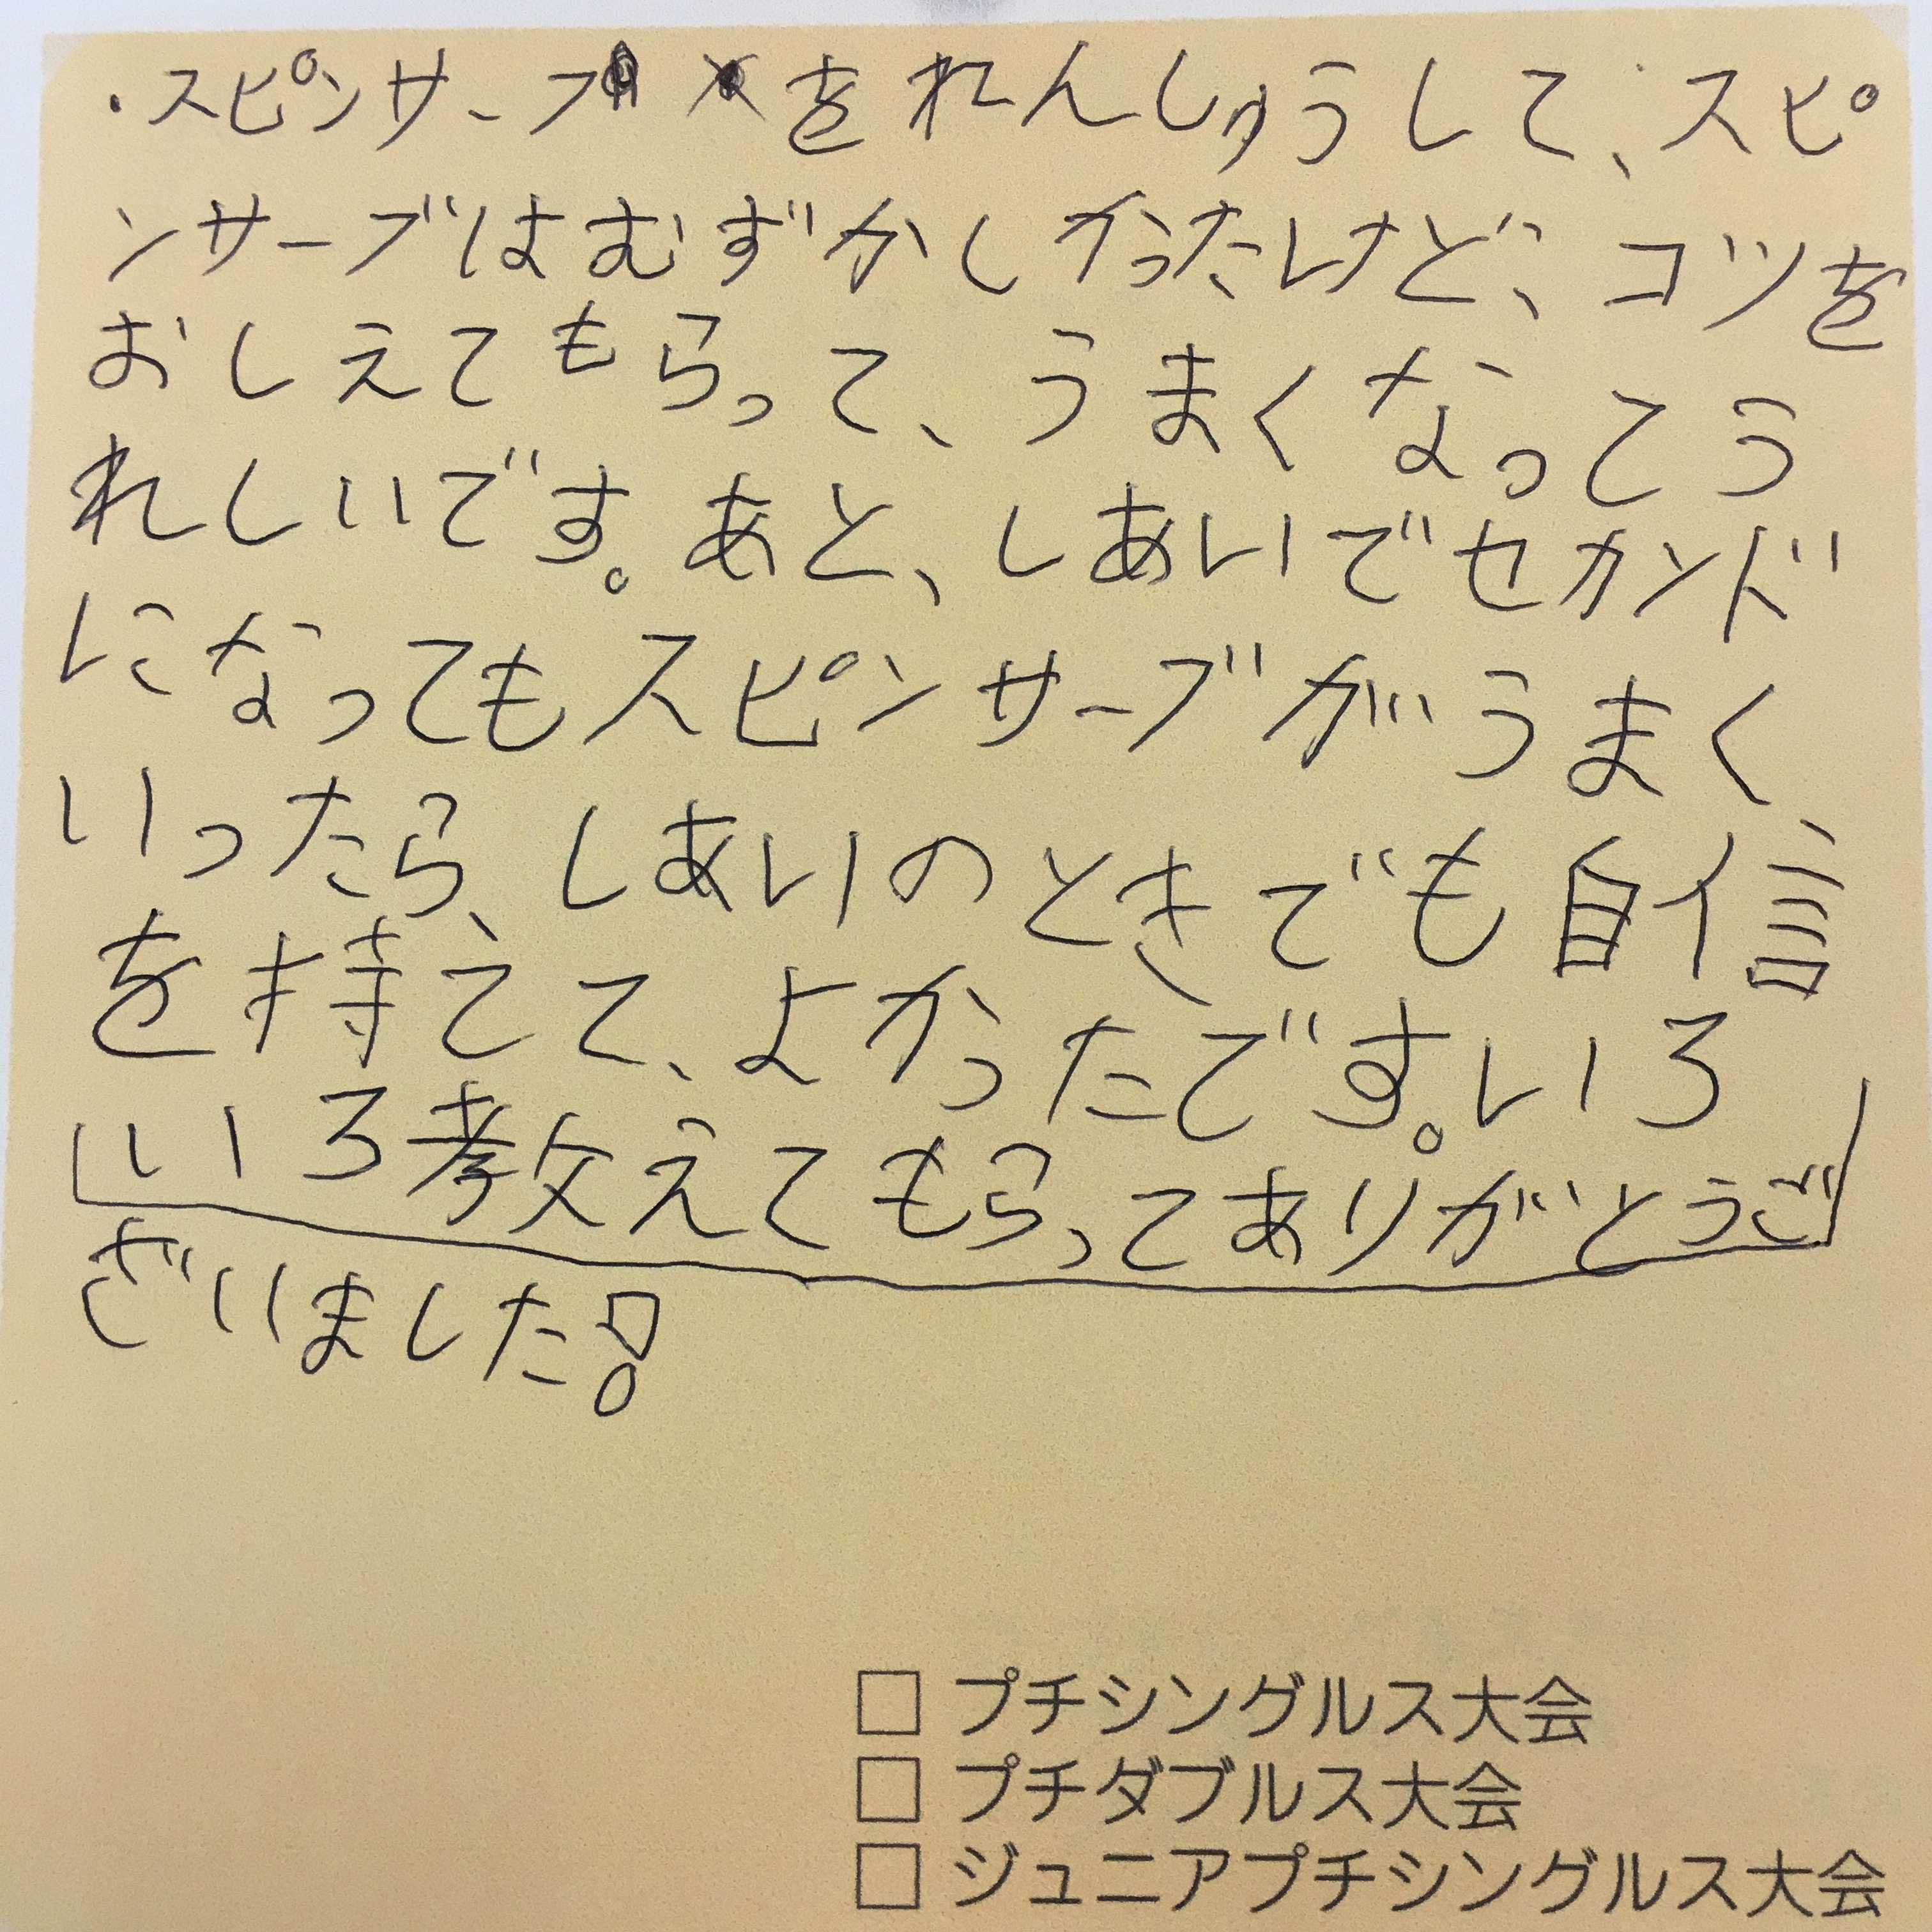 ・スピンサーブをれんしゅうして、スピ
ンサーブはむずかしかったけど、コツを
おしえてもらって、うまくなってう
れしいです。あと、しあいでセカンド
になってもスピンサーブがうまく
いったら、しあいのときでも自信
を持てて、よかったです。いろ
いろ教えてもらってありがとうご
ざいました!
□ プチシングルス大会
□ プチダブルス大会
□ ジュニアプチシングルス大会